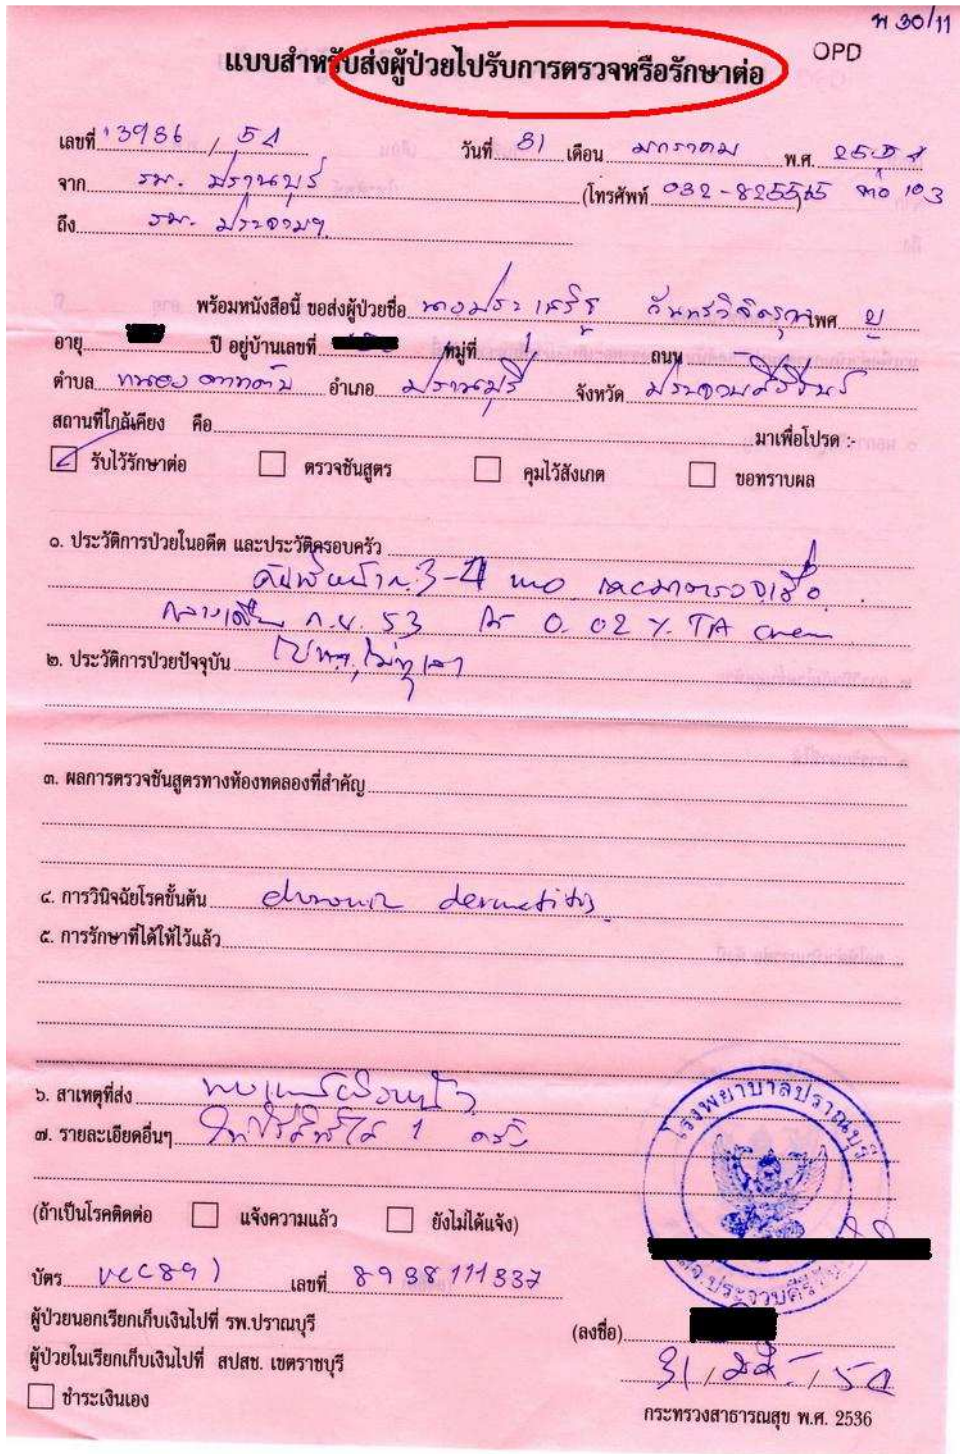 พ 30/11
OPD
แบบสำหรับส่งผู้ป่วยไปรับการตรวจหรือรักษาต่อ
เลขที่ 13986 / 54 วันที่ 31 เดือน มกราคม พ.ศ. 2554
จาก รพ. ปราณบุรี (โทรศัพท์ 032-825565 ต่อ 103
ถึง รพ. ประจวบฯ
พร้อมหนังสือนี้ ขอส่งผู้ป่วยชื่อ เพศ ญ
อายุ ปี อยู่บ้านเลขที่ หมู่ที่ 1 ถนน
ตำบล หนองตาแต้ม อำเภอ ปราณบุรี จังหวัด ประจวบคีรีขันธ์
สถานที่ใกล้เคียง คือ มาเพื่อโปรด :-
รับไว้รักษาต่อ ตรวจชันสูตร คุมไว้สังเกต ขอทราบผล
๑. ประวัติการป่วยในอดีต และประวัติครอบครัว
3-4
ก.ย. 53 0.02 % TA cream
๒. ประวัติการป่วยปัจจุบัน
๓. ผลการตรวจชันสูตรทางห้องทดลองที่สำคัญ
๔. การวินิจฉัยโรคขั้นต้น chronic dermatitis
๕. การรักษาที่ได้ให้ไว้แล้ว
๖. สาเหตุที่ส่ง
๗. รายละเอียดอื่นๆ ให้ใช้สิทธิ์ได้ 1 ครั้ง
โรงพยาบาลปราณบุรี
(ถ้าเป็นโรคติดต่อ แจ้งความแล้ว ยังไม่ได้แจ้ง)
จ.ประจวบคีรีขันธ์
บัตร เลขที่ 8938111337
ผู้ป่วยนอกเรียกเก็บเงินไปที่ รพ.ปราณบุรี
(ลงชื่อ)
ผู้ป่วยในเรียกเก็บเงินไปที่ สปสช. เขตราชบุรี
31 / / 54
ชำระเงินเอง
กระทรวงสาธารณสุข พ.ศ. 2536